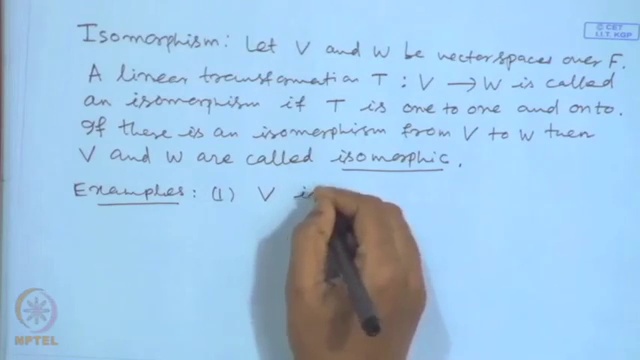 Isomorphism: Let V and W be vector spaces over F.
A linear transformation T : V → W is called
an isomorphism if T is one to one and onto.
If there is an isomorphism from V to W then
V and W are called isomorphic.
Examples: (1) V i
© CET
I.I.T. KGP
NPTEL